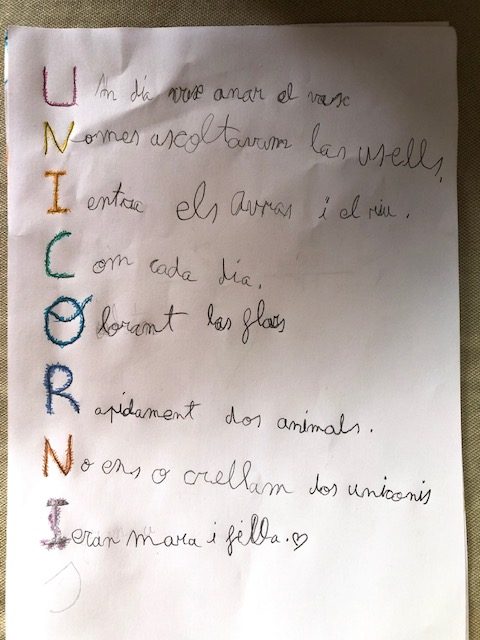 Un día vax anar el vosc
Nomes ascoltavam las usells,
I entra els avras i el riu.
Com cada día.
Olorant las flors
Rapidament dos animals.
No ens o crellam dos uniconis
I eran mara i filla.